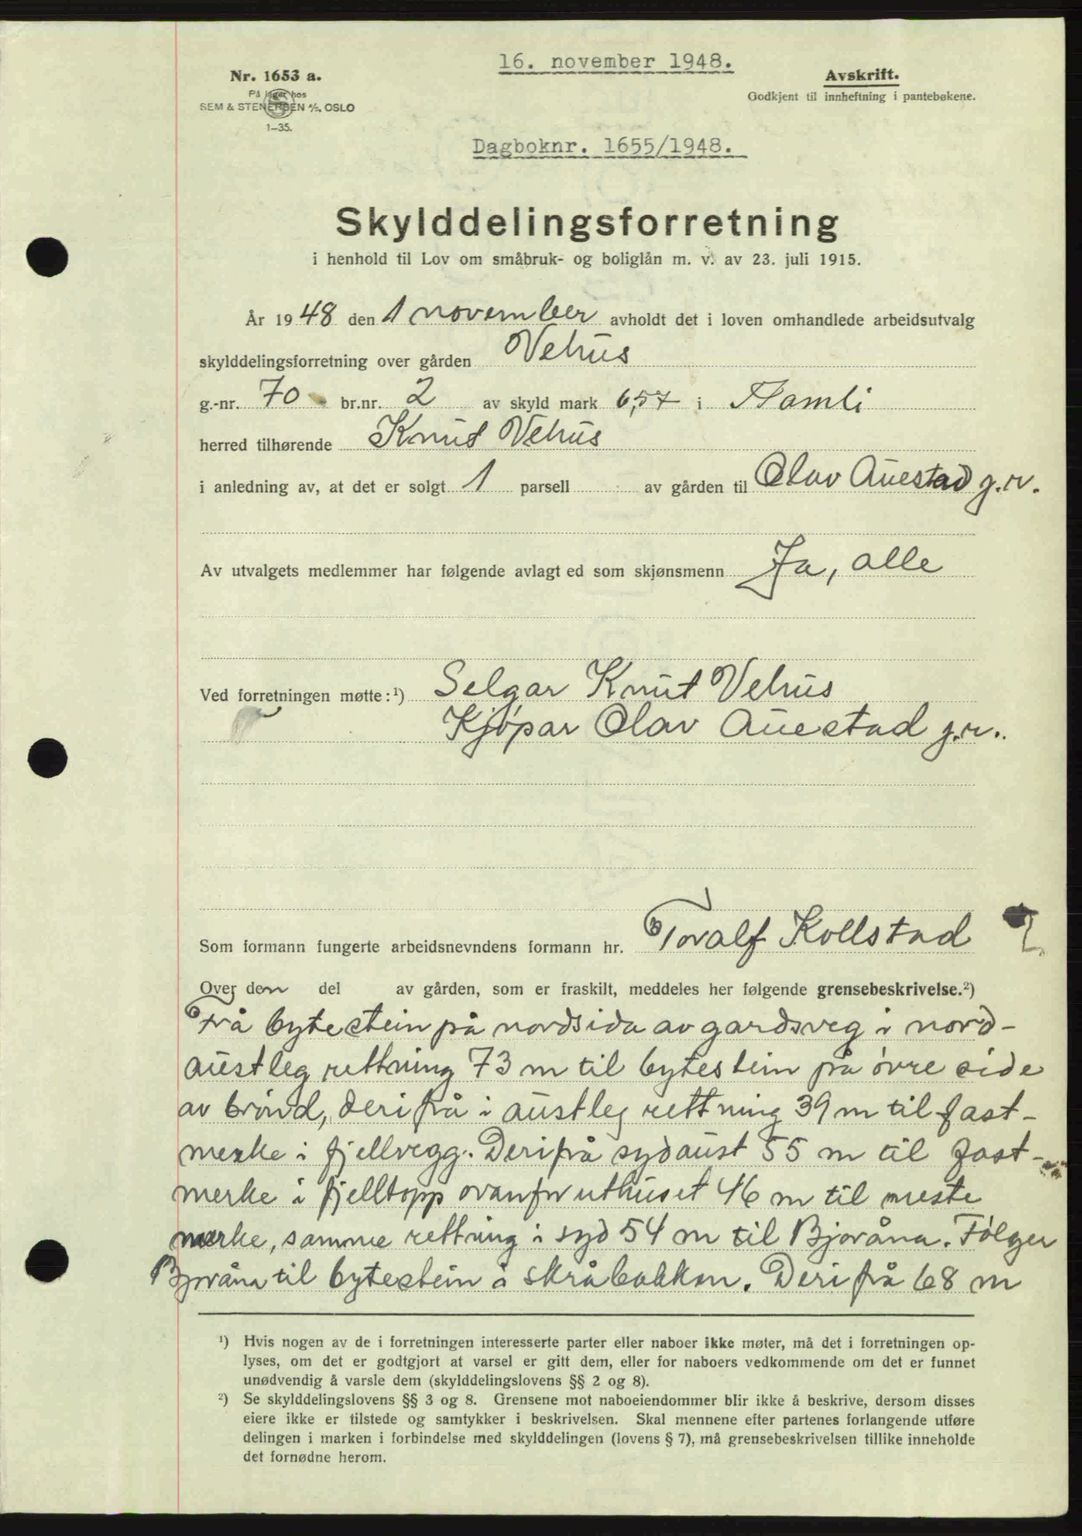 16. november 1948.
Nr. 1653 a.
På lager hos
SEM & STENERSEN A/S, OSLO
1-35.
Avskrift.
Godkjent til innheftning i pantebøkene.
Dagboknr. 1655/1948.
Skylddelingsforretning
i henhold til Lov om småbruk- og boliglån m. v. av 23. juli 1915.
År 1948 den 1 november avholdt det i loven omhandlede arbeidsutvalg
skylddelingsforretning over gården Vehus
g.-nr. 70 br.nr. 2 av skyld mark 6,57 i Åamli
herred tilhørende Knut Vehus
i anledning av, at det er solgt 1 parsell av gården til Olav Auestad g.v.
Av utvalgets medlemmer har følgende avlagt ed som skjønsmenn Ja, alle
Ved forretningen møtte:¹) Selgar Knut Vehus
Kjøpar Olav Auestad g.v.
Som formann fungerte arbeidsnevndens formann hr. Toralf Kollstad
Over den del av gården, som er fraskilt, meddeles her følgende grensebeskrivelse.²)
Frå bytestein på nordsida av gardsveg i nord-
austleg rettning 73 m til bytestein på øvre side
av brønd, derifrå i austleg rettning 39 m til fast-
merke i fjellvegg. Derifrå sydaust 55 m til fast-
merke i fjelltopp ovanfor uthuset 46 m til neste
merke, samme rettning i syd 54 m til Bjoråna. Følger
Bjoråna til bytestein i skråbakken. Derifrå 68 m
¹) Hvis nogen av de i forretningen interesserte parter eller naboer ikke møter, må det i forretningen op-
lyses, om det er godtgjort at varsel er gitt dem, eller for naboers vedkommende om det er funnet
unødvendig å varsle dem (skylddelingslovens §§ 2 og 8).
²) Se skylddelingslovens §§ 3 og 8. Grensene mot naboeiendommer blir ikke å beskrive, dersom disses
eiere ikke er tilstede og samtykker i beskrivelsen. Skal mennene efter partenes forlangende utføre
delingen i marken i forbindelse med skylddelingen (lovens § 7), må grensebeskrivelsen tillike inneholde
det fornødne herom.